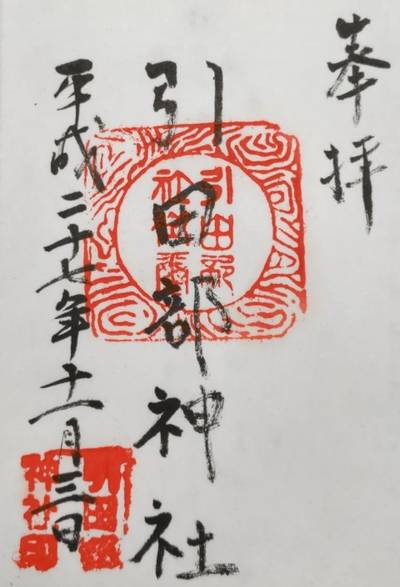 奉拝
引田部神社
平成二十七年十一月三日
引田部
神社印